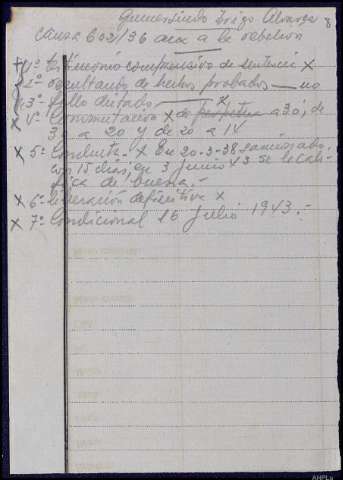 Gumersindo Trigo Alvarez 8
Causa 602/36 aux a la rebelion
1º testimonio comprensivo de sentencia x
2º resultando de hechos probados — no
3º fallo dictado — x
x 4º Conmutacion x de perpetua a 30, de
30 a 20 y de 20 a 14
x 5º Conducta - x En 20-3-38 sancionado
con 15 dias, en 3 junio 43 se le cali-
fica de buena.-
x 6º liberación definitiva x
x 7º Condicional 16 Julio 1943.-
AHPLu